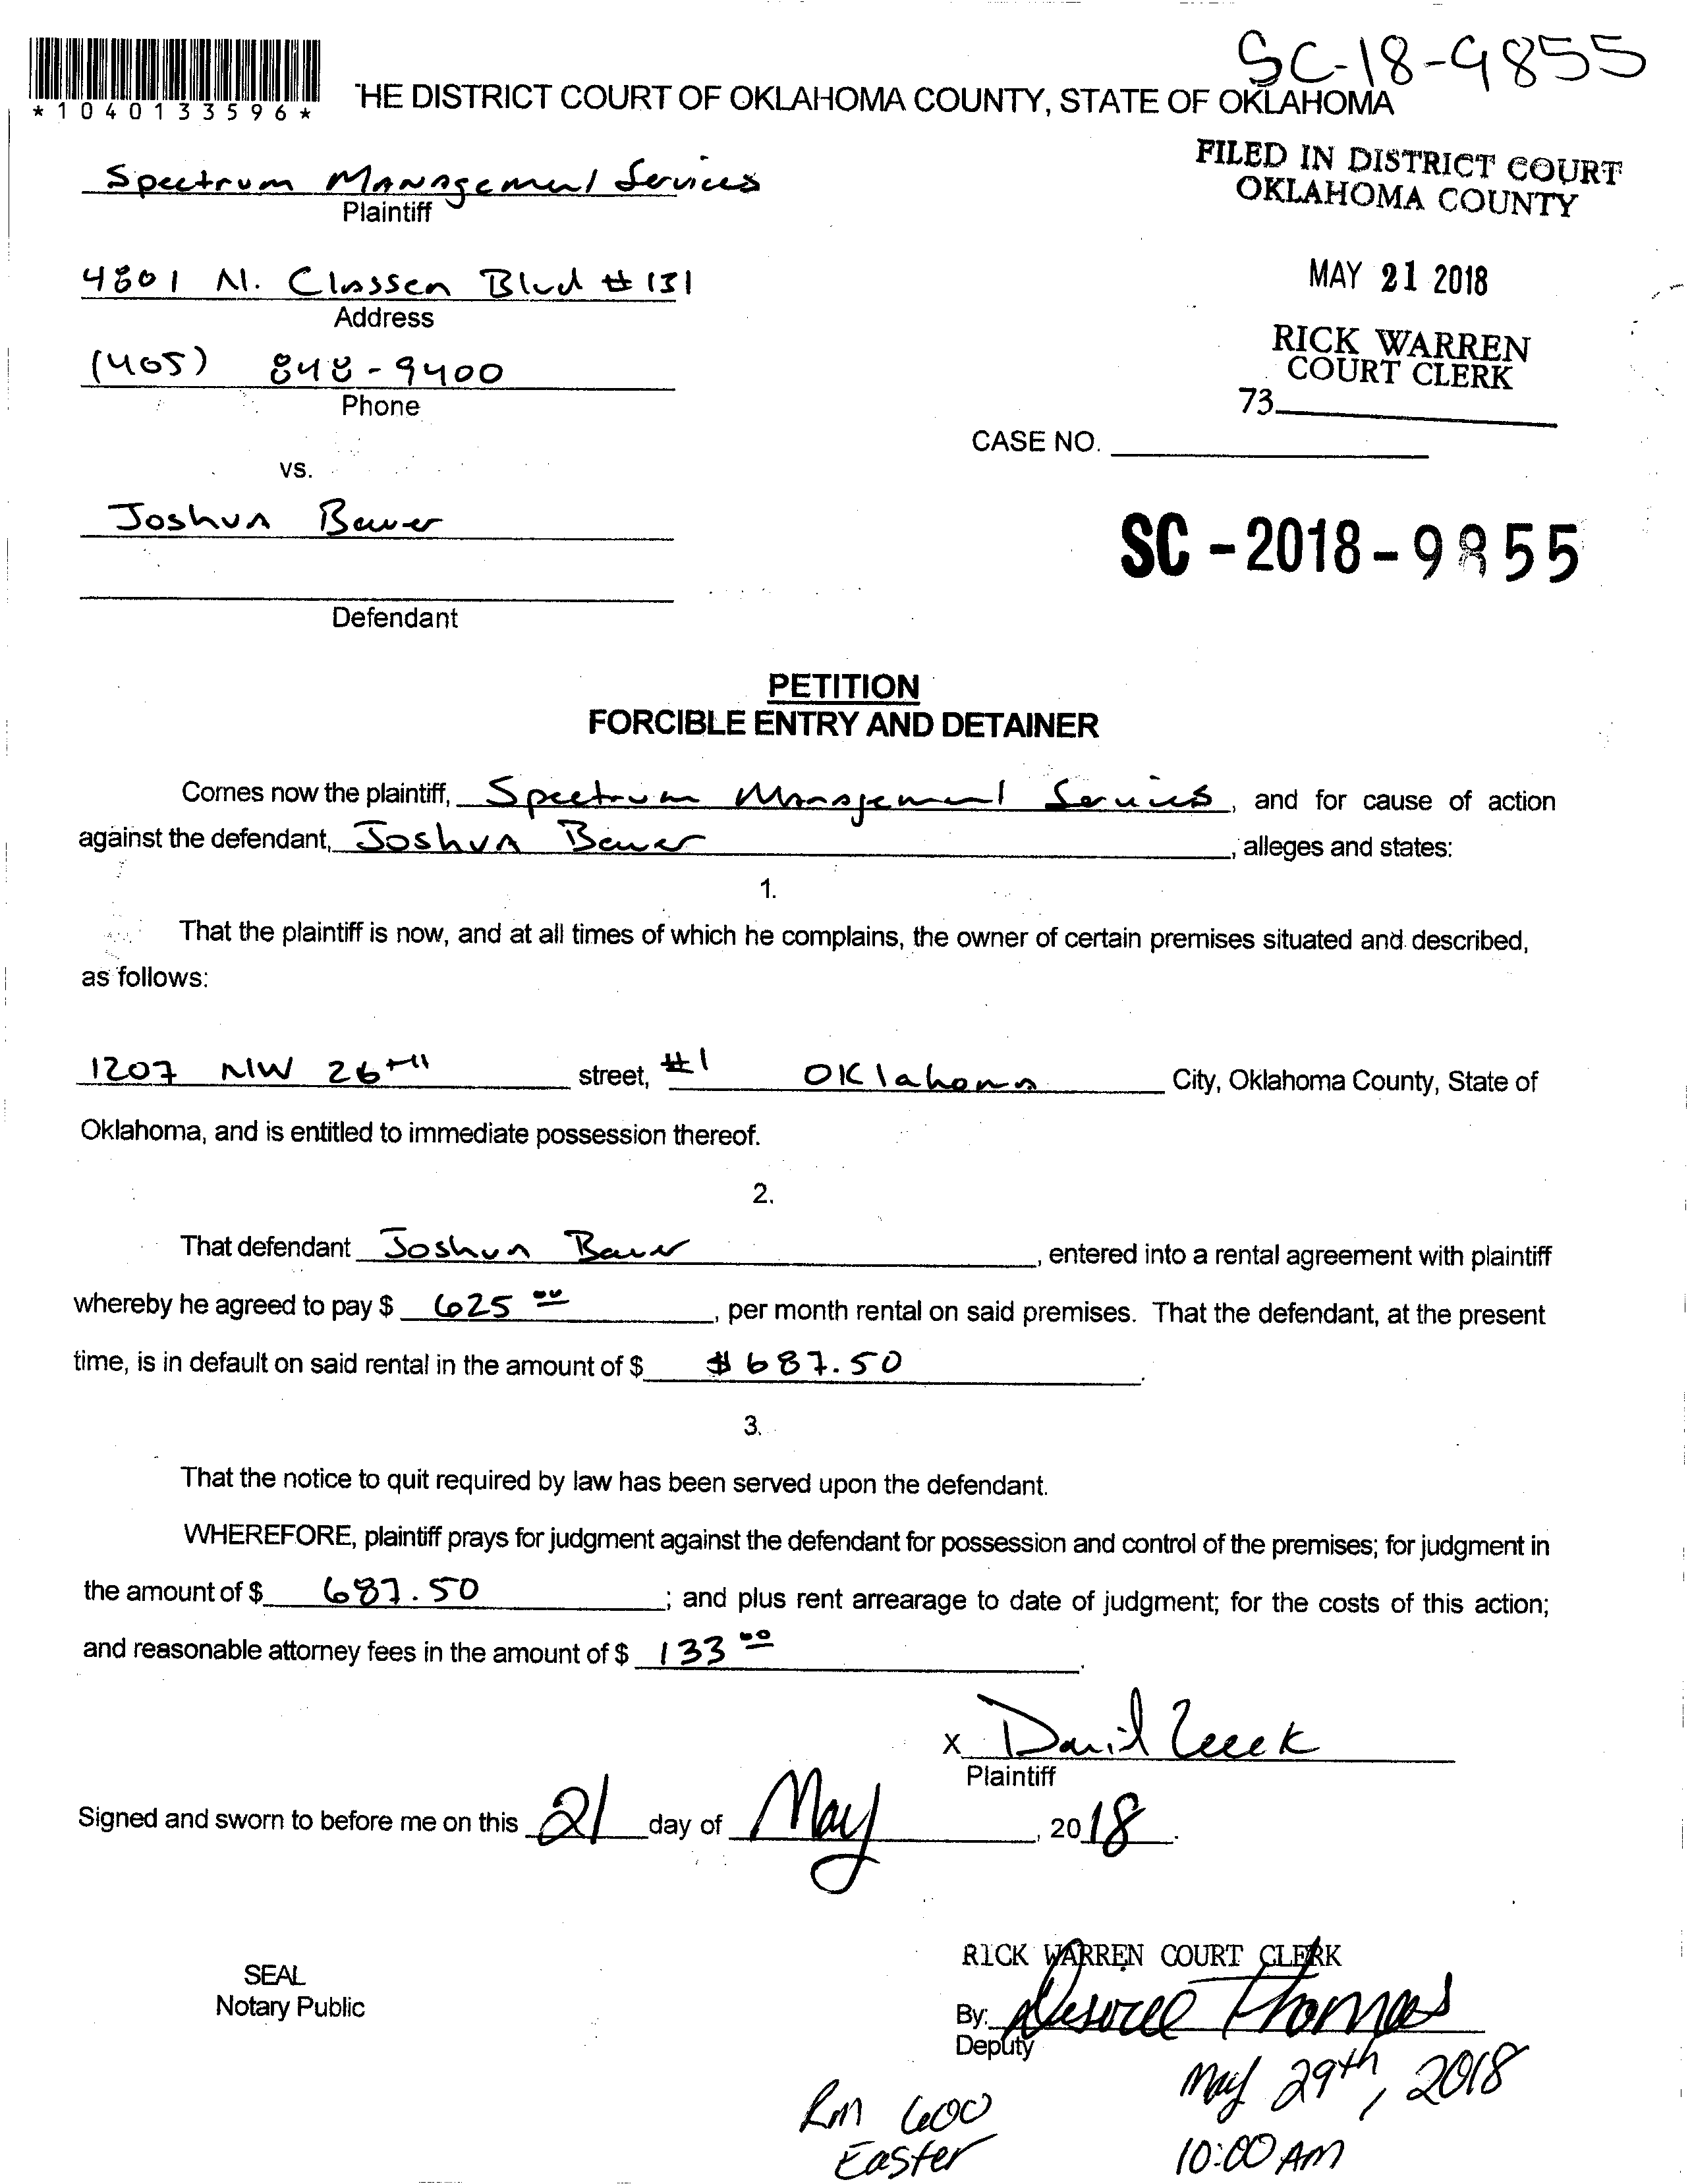 SC-18-9855
*1040133596*
THE DISTRICT COURT OF OKLAHOMA COUNTY, STATE OF OKLAHOMA
FILED IN DISTRICT COURT
OKLAHOMA COUNTY
Spectrum Management Services
Plaintiff
MAY 21 2018
4801 N. Classen Blvd #131
Address
RICK WARREN
COURT CLERK
(405) 848-9400
Phone
73
CASE NO.
vs.
Joshua Bauer
SC-2018-9855
Defendant
PETITION
FORCIBLE ENTRY AND DETAINER
Comes now the plaintiff, Spectrum Management Services, and for cause of action
against the defendant, Joshua Bauer, alleges and states:
1.
That the plaintiff is now, and at all times of which he complains, the owner of certain premises situated and described,
as follows:
1207 NW 26TH street, #1 Oklahoma City, Oklahoma County, State of
Oklahoma, and is entitled to immediate possession thereof.
2.
That defendant Joshua Bauer, entered into a rental agreement with plaintiff
whereby he agreed to pay $ 625 00, per month rental on said premises. That the defendant, at the present
time, is in default on said rental in the amount of $ $687.50.
3.
That the notice to quit required by law has been served upon the defendant.
WHEREFORE, plaintiff prays for judgment against the defendant for possession and control of the premises; for judgment in
the amount of $ 687.50; and plus rent arrearage to date of judgment; for the costs of this action;
and reasonable attorney fees in the amount of $ 133 00.
X David
Plaintiff
Signed and sworn to before me on this 21 day of May, 2018.
RICK WARREN COURT CLERK
SEAL
Notary Public
By: Desiree Thomas
Deputy
May 29th, 2018
Rm 600
Easter
10:00 AM